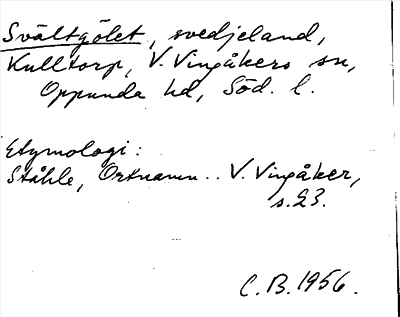 Svältgölet, svedjeland,
Kulltorp, V. Vingåkers sn,
Oppunda hd, Söd. l.
Etymologi:
Ståhle, Ortnamn .. V. Vingåker,
s. 23.
C. B. 1956.